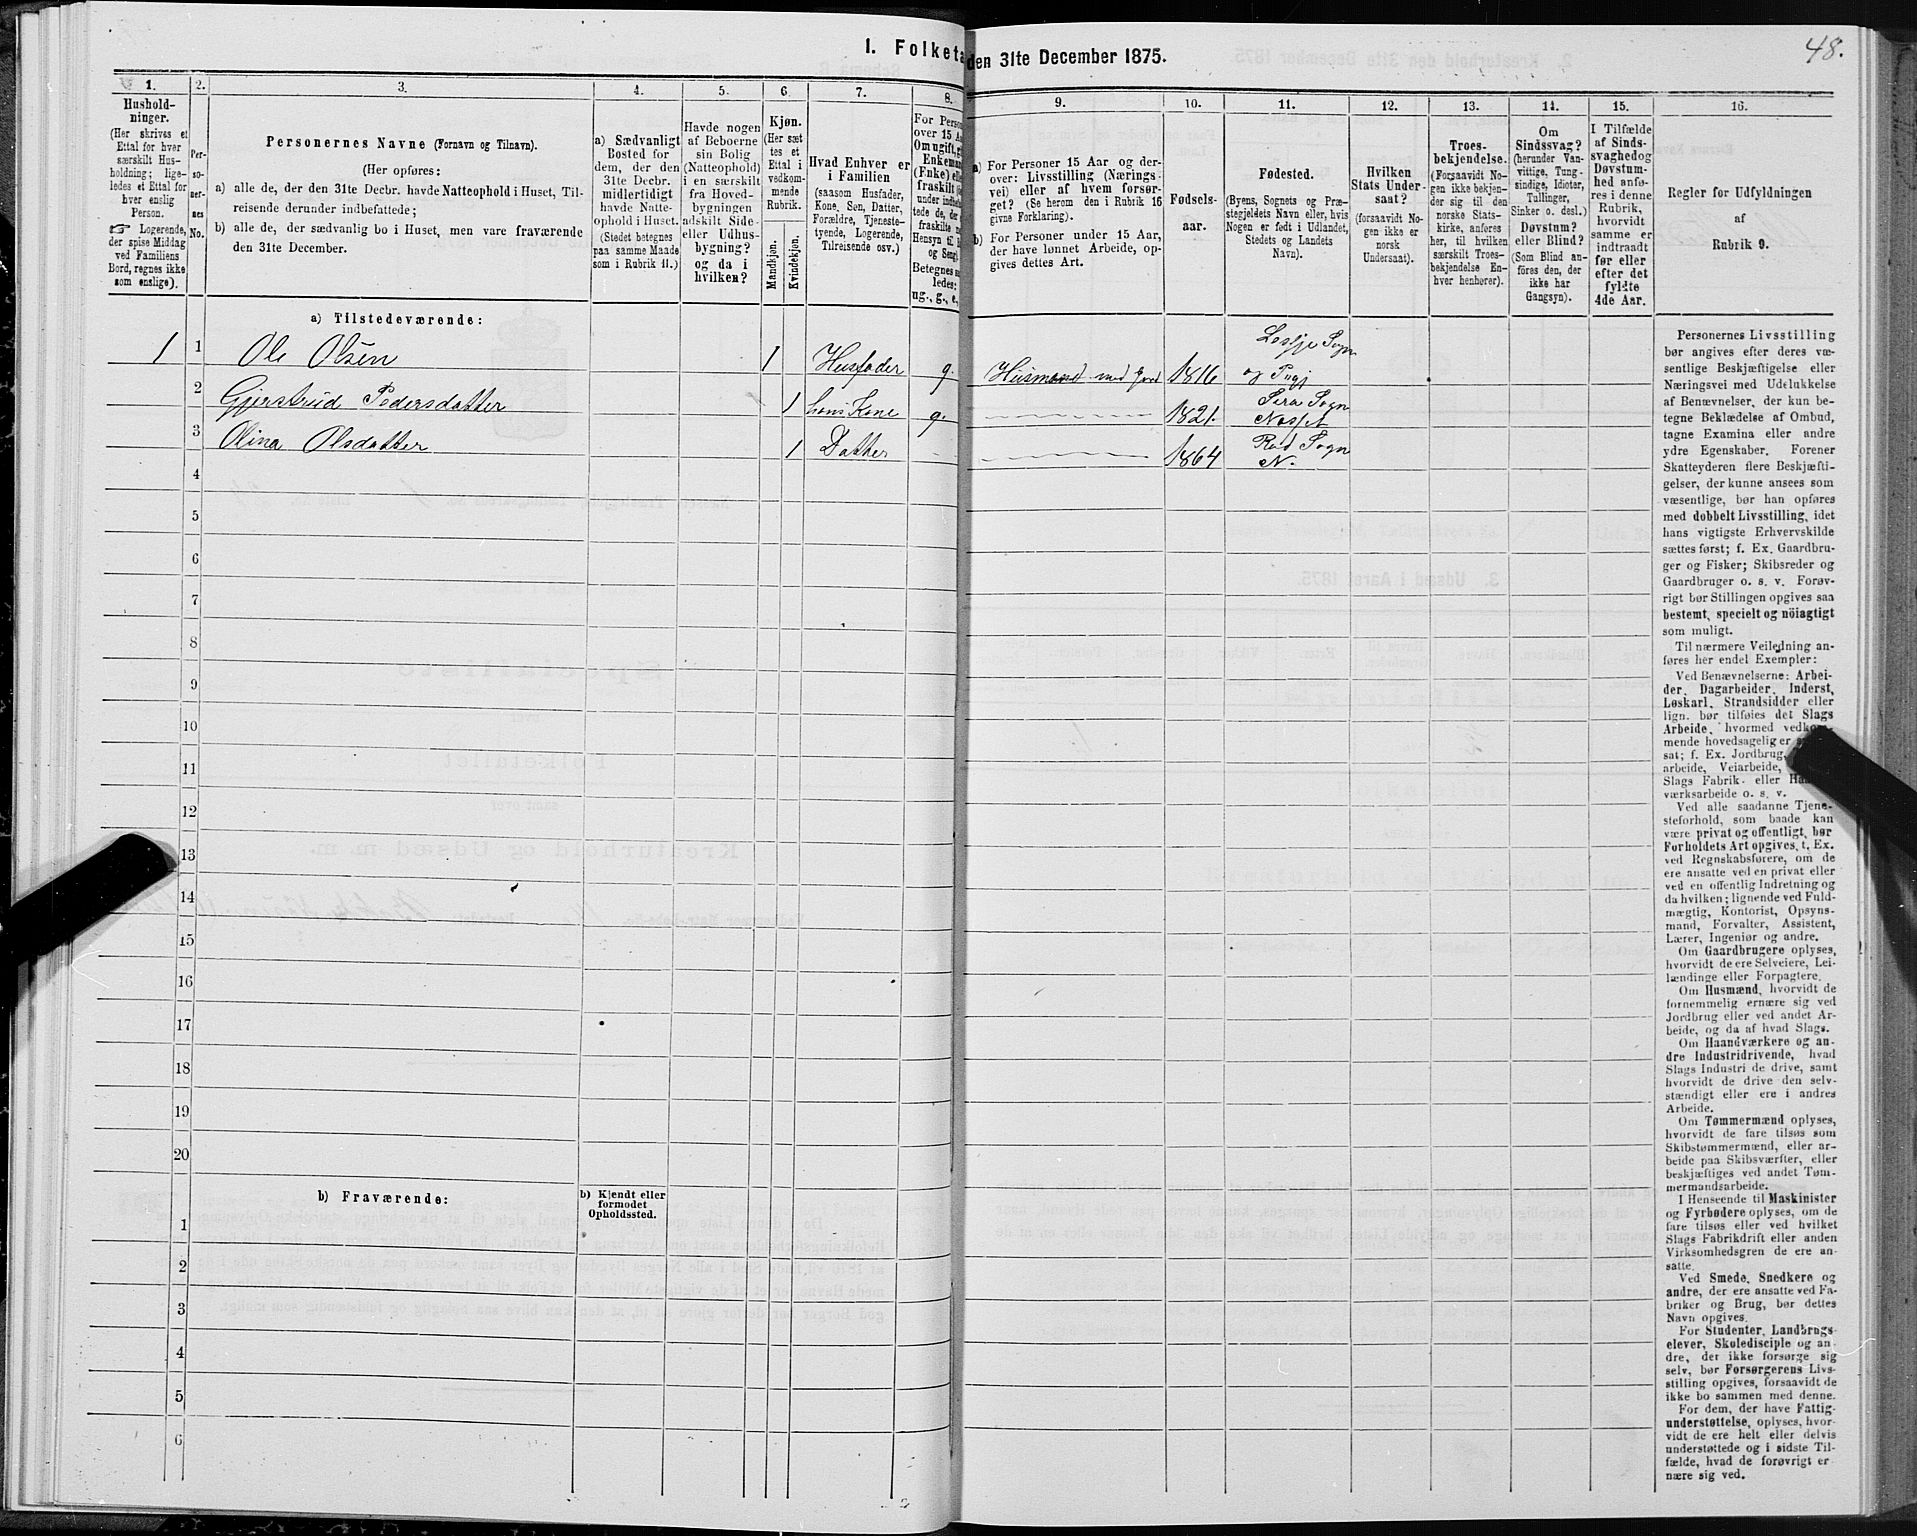 48.
1. Folketa den 31te December 1875.
1. 2. 3. 4. 5. 6. 7. 8. 9. 10. 11. 12. 13. 14. 15. 16.
Hushold-
ninger.
(Her skrives et
Ettal for hver
særskilt Hus-
holdning; lige-
ledes et Ettal for
hver enslig
Person.
☞ Logerende,
der spise Middag
ved Familiens
Bord, regnes ikke
som enslige).
Per-
so-
ner-
nes
No.
Personernes Navne (Fornavn og Tilnavn).
(Her opføres:
a) alle de, der den 31te Decbr. havde Natteophold i Huset, Til-
reisende derunder indbefattede;
b) alle de, der sædvanlig bo i Huset, men vare fraværende
den 31te December.
a) Sædvanligt
Bosted for
dem, der den
31te Decbr.
midlertidigt
havde Natte-
ophold i Huset.
(Stedet betegnes
paa samme Maade
som i Rubrik 11.)
Havde nogen
af Beboerne
sin Bolig
(Natteophold)
i en særskilt
fra Hoved-
bygningen
adskilt Side-
eller Udhus-
bygning?
og da i
hvilken?
Kjøn.
(Her sæt
tes et
Ettal i
vedkom-
mende
Rubrik.
Mandkjøn.
Kvindekjøn.
Hvad Enhver er
i Familien
(saasom Husfader,
Kone, Søn, Datter,
Forældre, Tjeneste-
tyende, Logerende,
Tilreisende osv.)
For Person
over 15 Aa
Om ugift, g
Enkeman
(Enke) elle
fraskilt (
under indbef
tede de, der
fraskilte
Hensyn til
og Seng).
Betegnes sa
ledes:
ug., g., e.,
a) For Personer 15 Aar og der-
over: Livsstilling (Nærings-
vei) eller af hvem forsør-
get? (Se herom den i Rubrik 16
givne Forklaring).
b) For Personer under 15 Aar,
der have lønnet Arbeide, op-
gives dettes Art.
Fødsels-
aar.
Fødested.
(Byens, Sognets og Præ-
stegjeldets Navn eller, hvis
Nogen er født i Udlandet,
Stedets og Landets
Navn).
Hvilken
Stats Under-
saat?
(forsaavidt No-
gen ikke er
norsk
Undersaat).
Troes-
bekjendelse.
(Forsaavidt No-
gen ikke bekjen-
der sig til den
norske Stats-
kirke, anføres
her, til hvilken
særskilt Troes-
bekjendelse En-
hver henhører).
Om
Sindssvag?
(herunder Van-
vittige, Tung-
sindige, Idioter,
Tullinger,
Sinker o. desl.)
Døvstum?
eller Blind?
(Som Blind an-
føres den, der
ikke har
Gangsyn).
I Tilfælde
af Sinds-
svaghed og
Døvstum-
hed anfø-
res i denne
Rubrik,
hvorvidt
samme er
indtraadt
før eller
efter det
fyldte
4de Aar.
Regler for Udfyldningen
af
Rubrik 9.
a) Tilstedeværende:
1 1 Ole Olsen 1 Husfader g. Husmand med Jord 1816 Lesje Sogn
og Pngj
2 Gjerstrud Pedersdatter 1 hans Kone g. 1821. Sira Sogn
Nesset
3 Olina Olsdatter 1 Datter 1864 Rød Sogn
N.
4
5
6
7
8
9
10
11
12
13
14
15
16
17
18
19
20
b) Fraværende:
b) Kjendt eller
formodet
Opholdssted.
1
2
3
4
5
6
Personernes Livsstilling
bør angives efter deres væ-
sentlige Beskjæftigelse eller
Næringsvei med Udelukkelse
af Benævnelser, der kun be-
tegne Beklædelse af Ombud,
tagne Examina eller andre
ydre Egenskaber. Forener
Skatteyderen flere Beskjæfti-
gelser, der kunne ansees som
væsentlige, bør han opføres
med dobbelt Livsstilling, idet
hans vigtigste Erhvervskilde
sættes først; f. Ex. Gaardbru-
ger og Fisker; Skibsreder og
Gaardbruger o. s. v. Forøv-
rigt bør Stillingen opgives saa
bestemt, specielt og nöiagtigt
som muligt.
Til nærmere Veiledning an-
føres her endel Exempler:
Ved Benævnelserne: Arbei-
der, Dagarbeider, Inderst,
Løskarl, Strandsidder eller
lign. bør tilføies det Slags
Arbeide, hvormed vedkom-
mende hovedsagelig er
sat; f. Ex. Jordbrug,
arbeide, Veiarbeide,
Slags Fabrik- eller Haa
værksarbeide o. s. v.
Ved alle saadanne Tjene-
steforhold, som baade kan
være privat og offentligt, bør
Forholdets Art opgives, t. Ex.
ved Regnskabsførere, om de
ere ansatte ved en privat eller
ved en offentlig Indretning og
da hvilken; lignende ved Fuld-
mægtig, Kontorist, Opsyns-
mand, Forvalter, Assistent,
Lærer, Ingeniør og andre.
Om Gaardbrugere oplyses,
hvorvidt de ere Selveiere, Lei-
lændinge eller Forpagtere.
Om Husmænd, hvorvidt de
fornemmelig ernære sig ved
Jordbrug eller ved andet Ar-
beide, og da af hvad Slags.
Om Haandværkere og an-
dre Industridrivende, hvad
Slags Industri de drive, samt
hvorvidt de drive den selv-
stændigt eller ere i andres
Arbeide.
Om Tømmermænd oplyses,
hvorvidt de fare tilsøs som
Skibstømmermænd, eller ar-
beide paa Skibsværfter, eller
beskjæftiges ved andet Tøm-
mermandsarbeide.
I Henseende til Maskinister
og Fyrbødere oplyses, om de
fare tilsøs eller ved hvilket
Slags Fabrikdrift eller anden
Virksomhedsgren de ere an-
satte.
Ved Smede, Snedkere og
andre, der ere ansatte ved Fa-
briker og Brug, bør dettes
Navn opgives.
For Studenter, Landbrugs-
elever, Skoledisciple og an-
dre, der ikke forsørge sig
selv, bør Forsørgerens Livs-
stilling opgives, forsaavidt de
ikke bo sammen med denne.
For dem, der have Fattig-
understøttelse, oplyses, hvor-
vidt de ere helt eller delvis
understøttede og i sidste Til-
fælde, hvad de forøvrigt er-
nære sig ved.